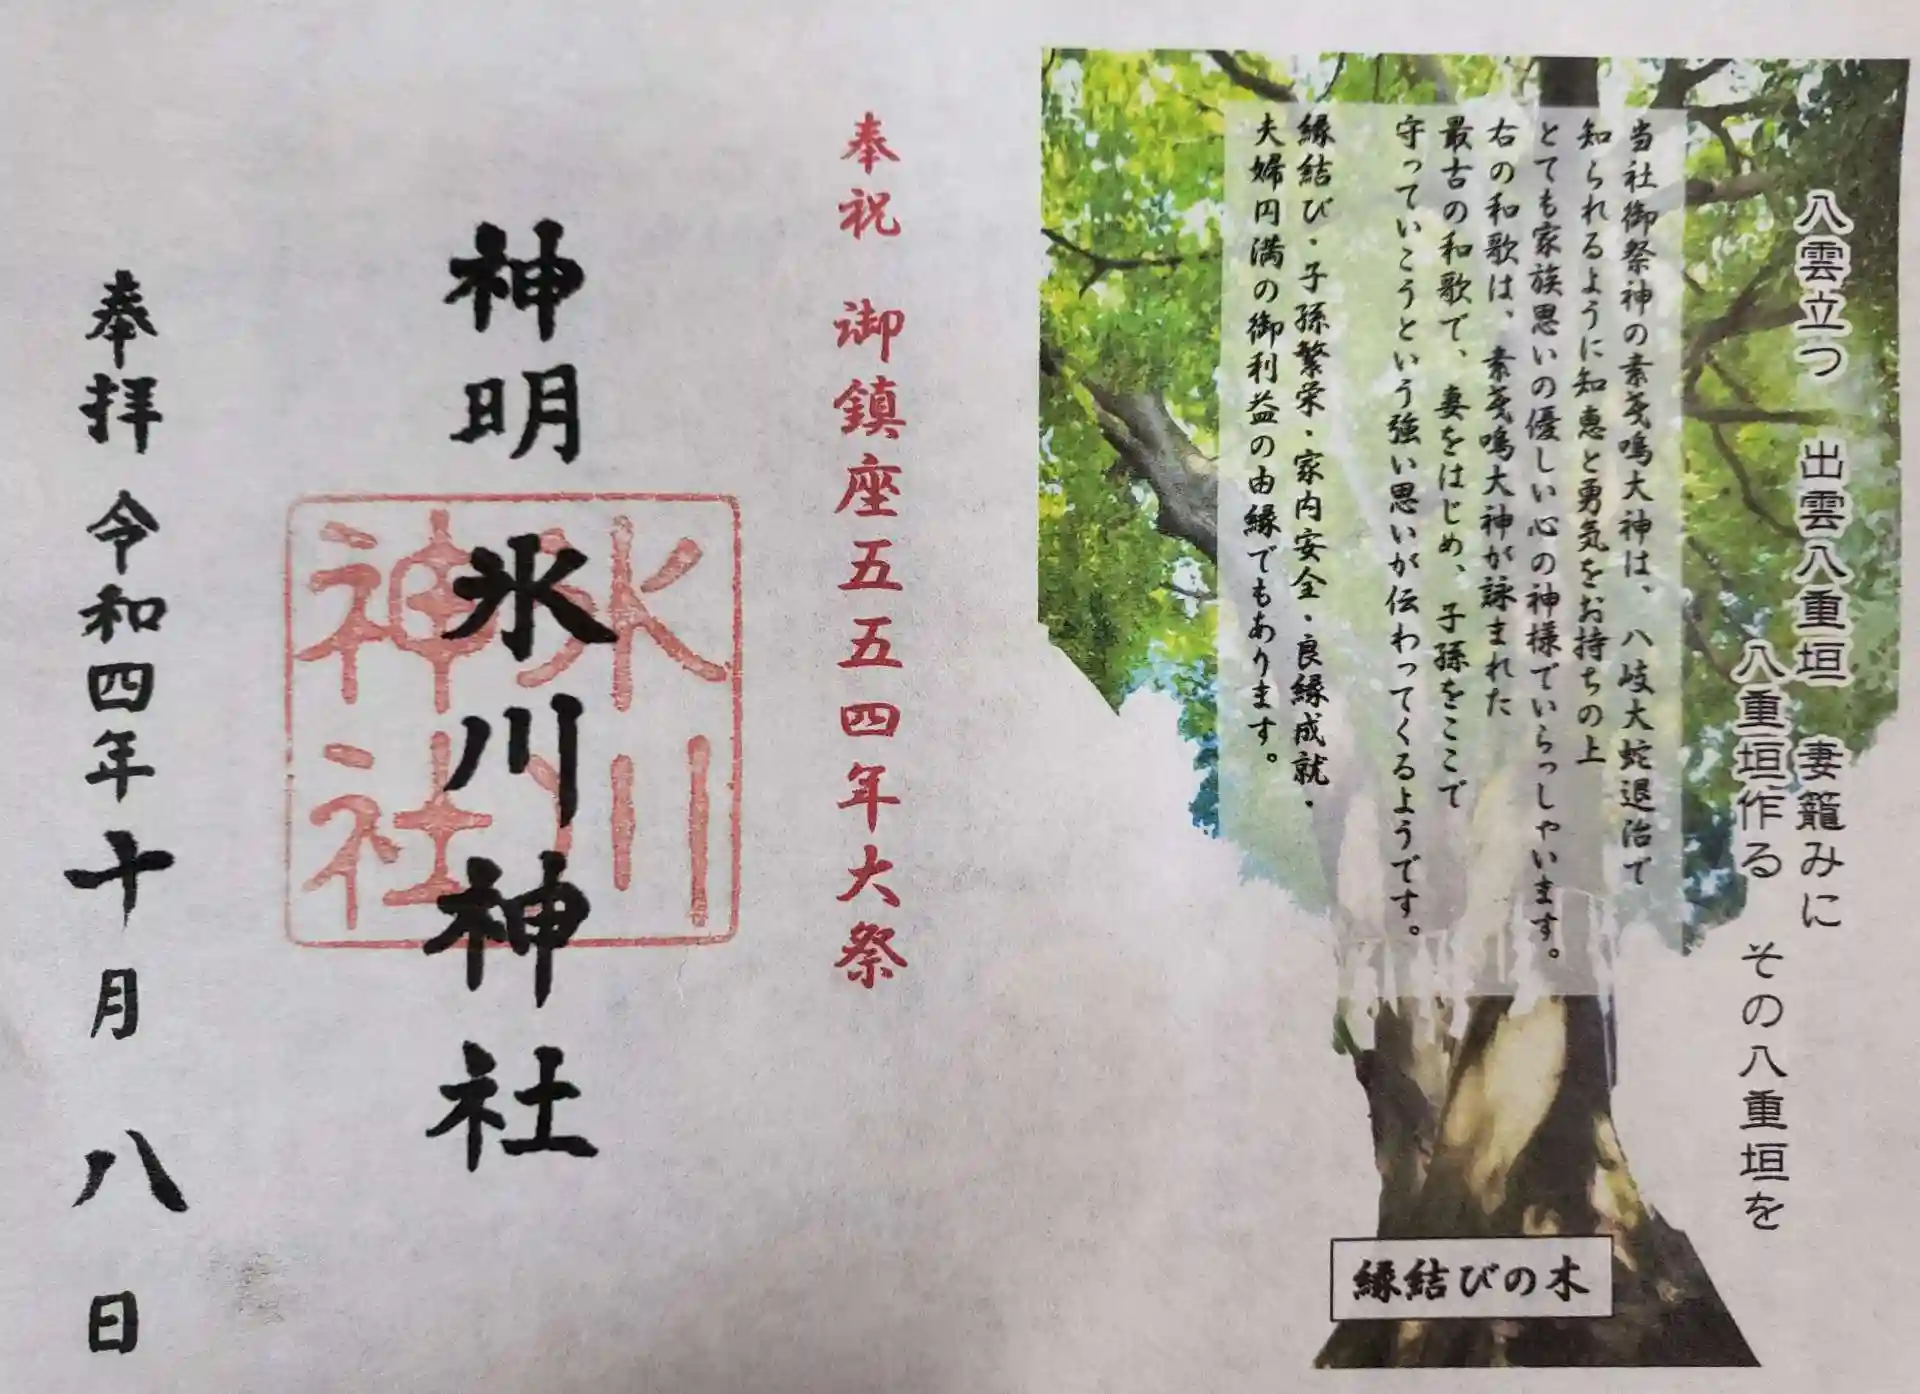 八雲立つ　出雲八重垣　妻籠みに
八重垣作る　その八重垣を
当社御祭神の素戔嗚大神は、八岐大蛇退治で
知られるように知恵と勇気をお持ちの上
とても家族思いの優しい心の神様でいらっしゃいます。
右の和歌は、素戔嗚大神が詠まれた
最古の和歌で、妻をはじめ、子孫をここで
守っていこうという強い思いが伝わってくるようです。
縁結び・子孫繁栄・家内安全・良縁成就・
夫婦円満の御利益の由縁でもあります。
縁結びの木
奉祝　御鎮座五五四年大祭
神明氷川神社
氷川
神社
奉拝　令和四年十月八日